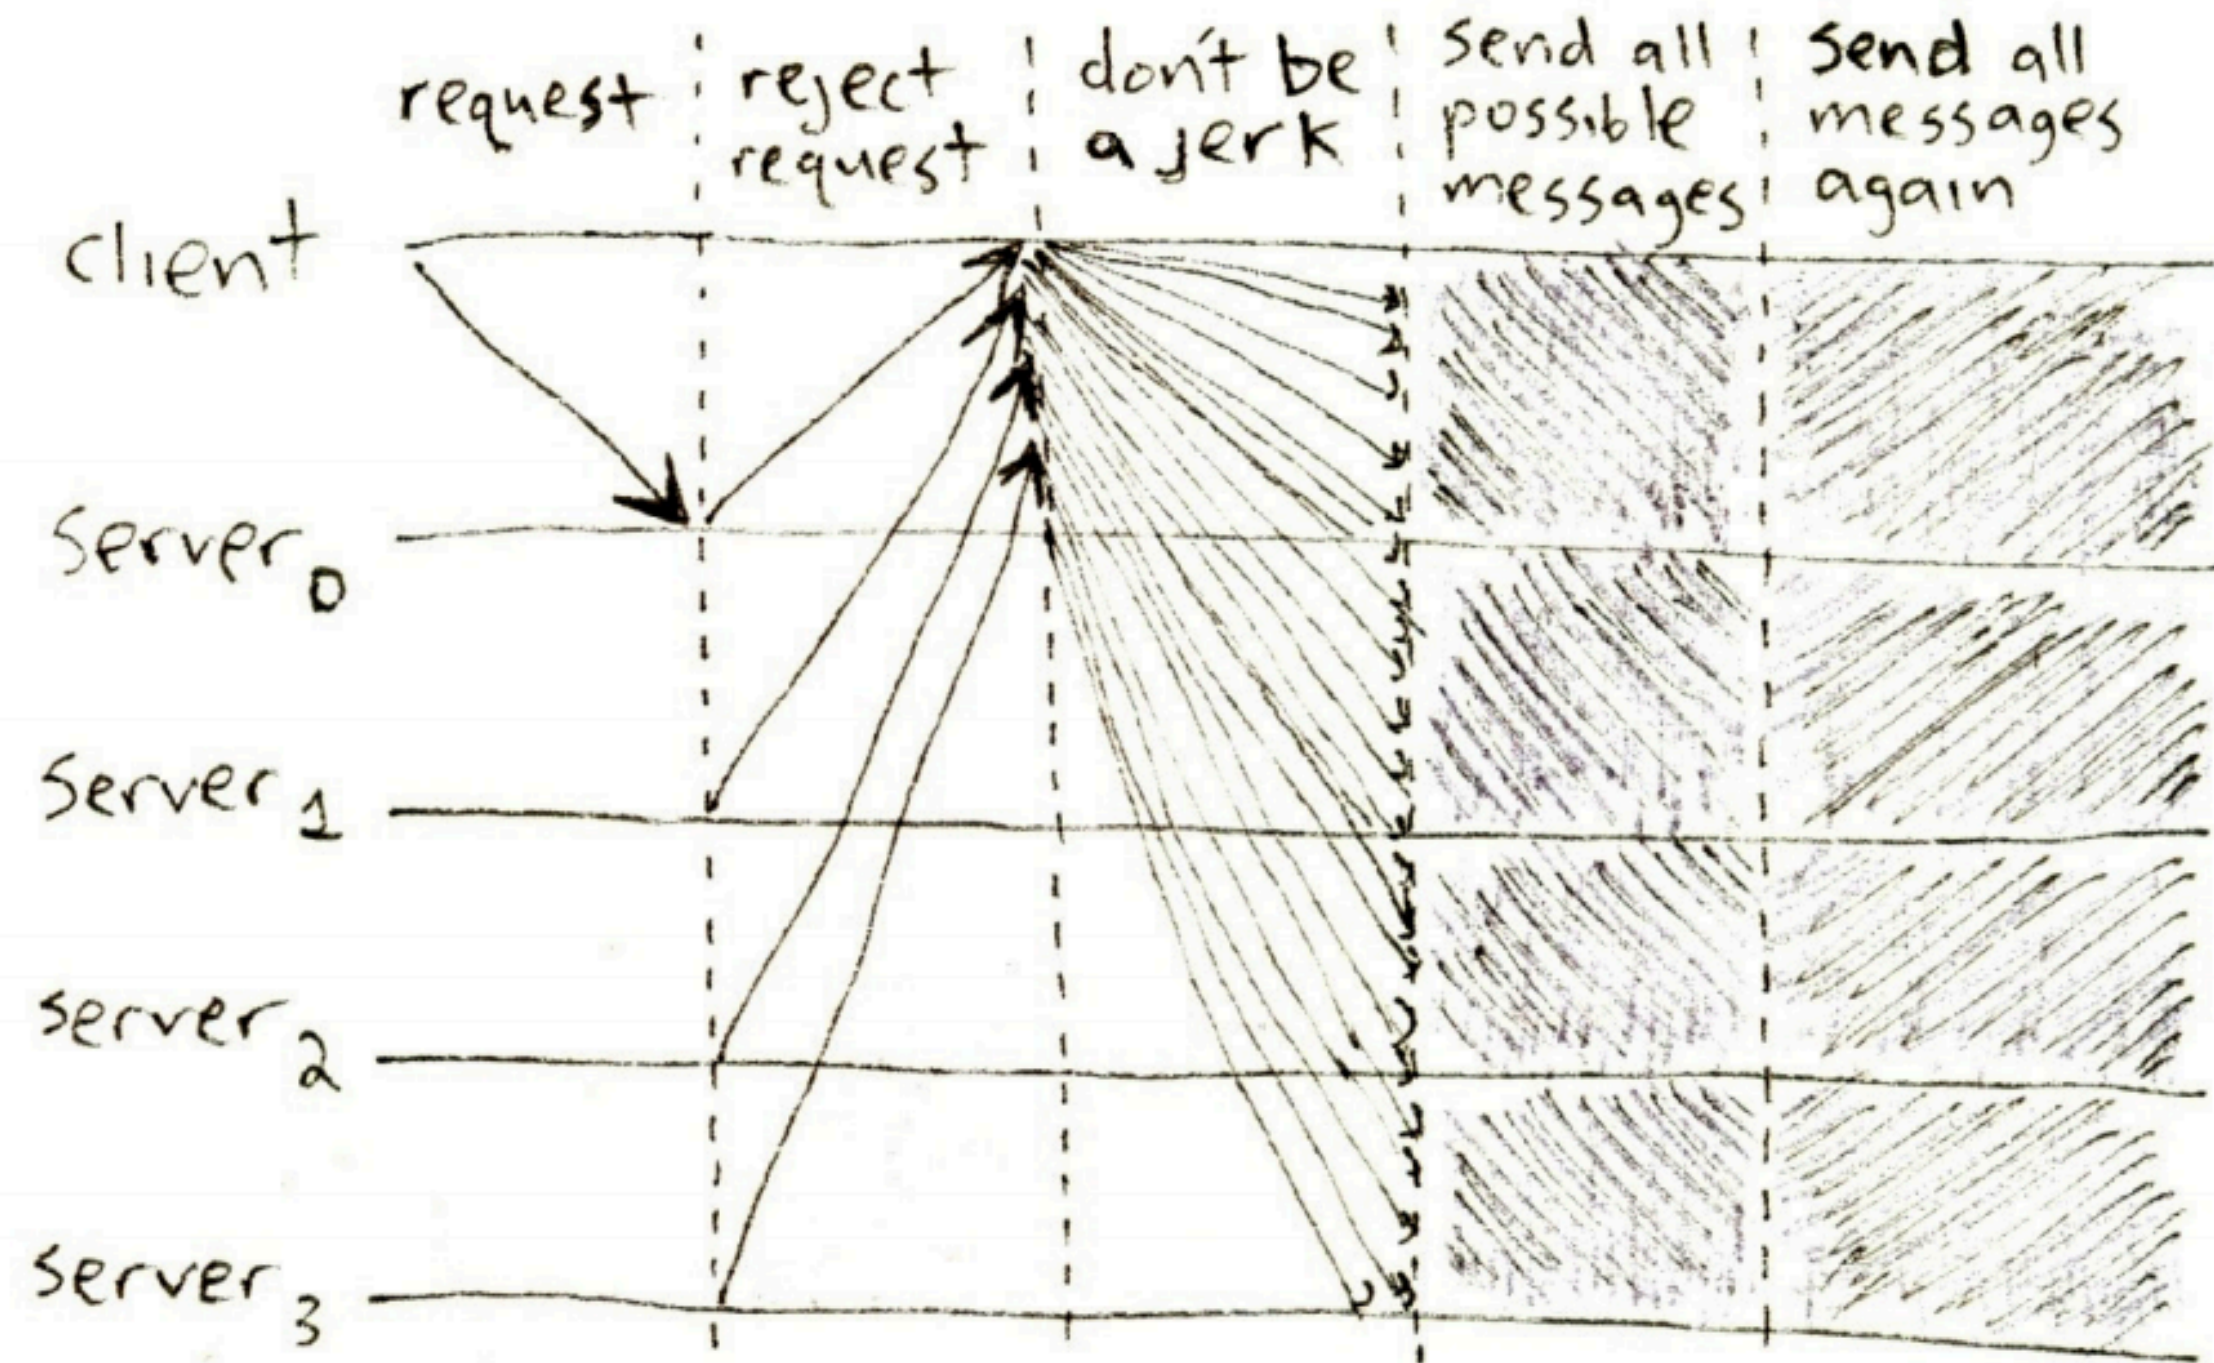 request
reject
request
don't be
a jerk
send all
possible
messages
Send all
messages
again
client
Server 0
Server 1
server 2
server 3